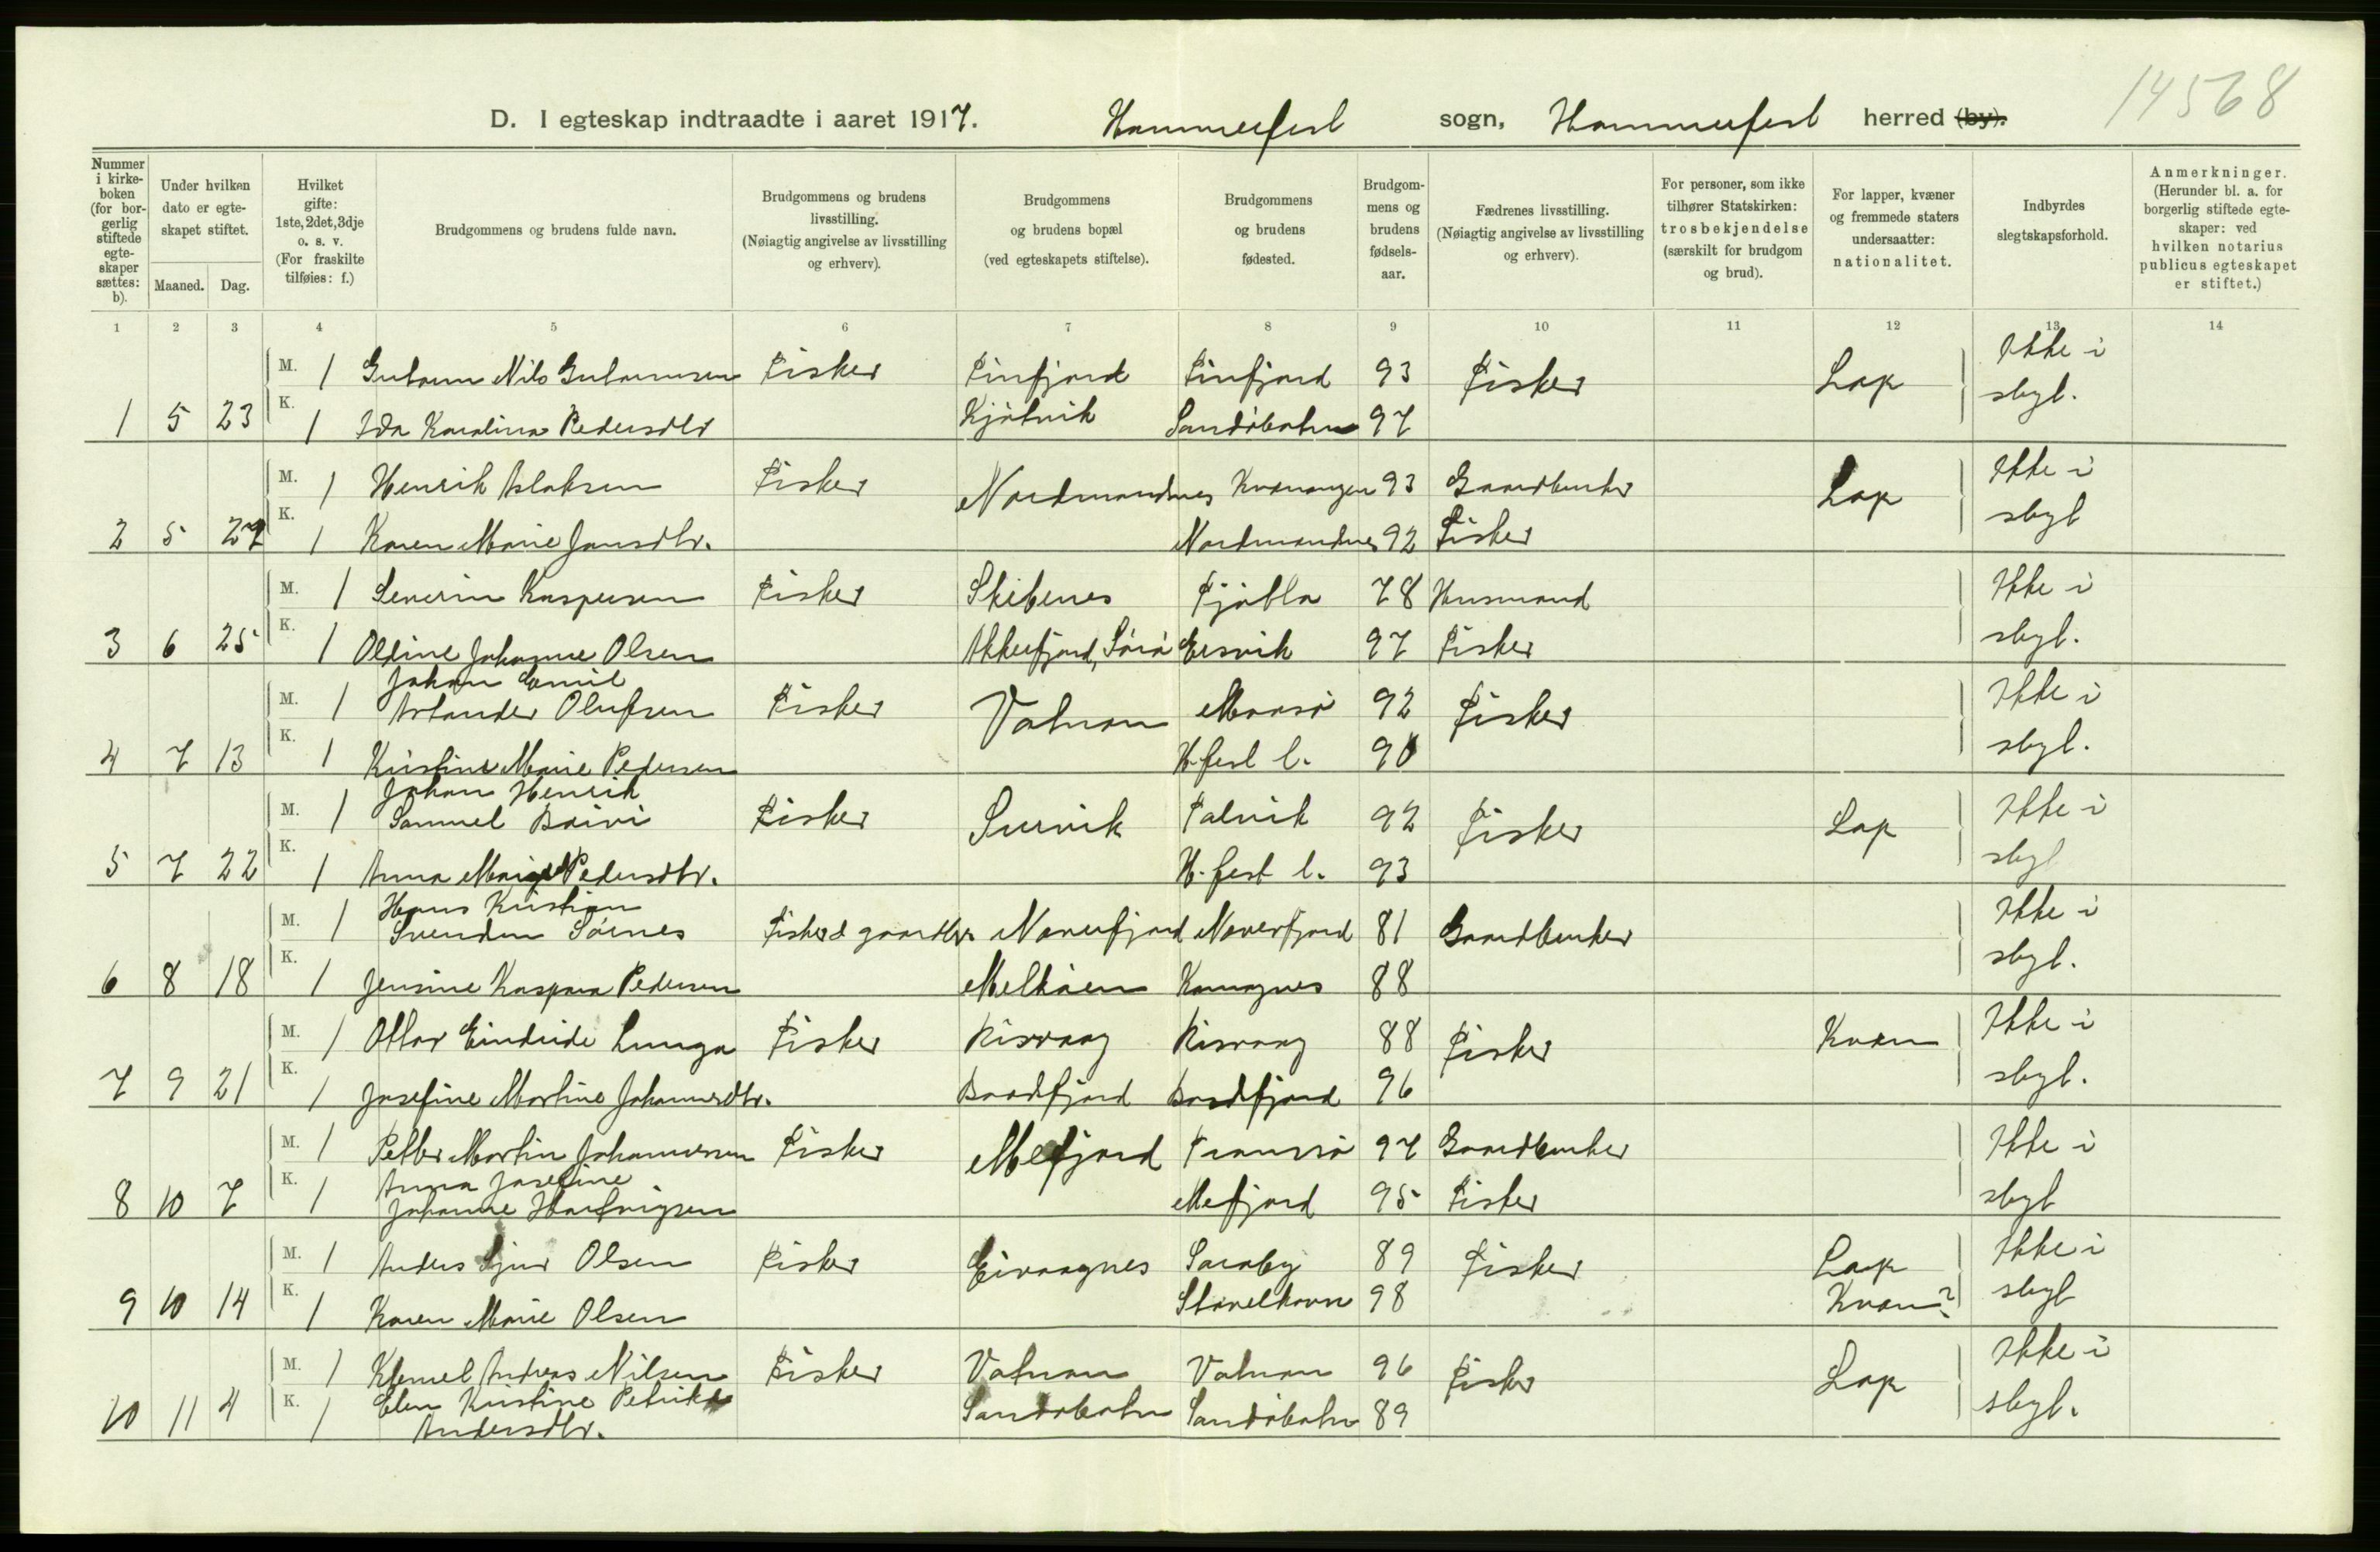 14568
D. I egteskap indtraadte i aaret 1917. Hammerfest sogn, Hammerfest herred (by).
Nummer i kirke-boken (for bor-gerlig stiftede egte-skaper sættes: b).
Under hvilken dato er egte-skapet stiftet.
Maaned. Dag.
Hvilket gifte: 1ste, 2det, 3dje o. s. v. (For fraskilte tilføies: f.)
Brudgommens og brudens fulde navn.
Brudgommens og brudens livsstilling. (Nøiagtig angivelse av livsstilling og erhverv).
Brudgommens og brudens bopæl (ved egteskapets stiftelse).
Brudgommens og brudens fødested.
Brudgom-mens og brudens fødsels-aar.
Fædrenes livsstilling. (Nøiagtig angivelse av livsstilling og erhverv).
For personer, som ikke tilhører Statskirken: trosbekjendelse (særskilt for brudgom og brud).
For lapper, kvæner og fremmede staters undersaatter: nationalitet.
Indbyrdes slegtskapsforhold.
Anmerkninger. (Herunder bl. a. for borgerlig stiftede egte-skaper: ved hvilken notarius publicus egteskapet er stiftet.)
1 2 3 4 5 6 7 8 9 10 11 12 13 14
M. 1 Nils Fisker Finfjord Finfjord 93 Fisker Lap Ikke i
1 5 23 K. 1 Ida Karolina Pedersdtr Kjøtvik Sandøbotn 97 sbgt.
M. 1 Henrik Aslaksen Fisker Nordmandnes Kvænangen 93 Gaardbruker Lap Ikke i
2 5 27 K. 1 Karen Marie Jansdtr. Nordmandnes 92 Fisker sbgt
M. 1 Severin Kaspersen Fisker Skibenes 78 Husmand Ikke i
3 6 25 K. 1 Oldine Johanne Olsen Akkerfjord, Sørø 97 Fisker sbgt.
Johan Emil
M. 1 Olufsen Fisker Vatnan Maasø 92 Fisker Ikke i
4 7 13 K. 1 Kristine Marie Pedersen H.fest l. 90 sbgt.
Johan Henrik
M. 1 Samuel Fisker Survik Talvik 92 Fisker Lap Ikke i
5 7 22 K. 1 Anna Marie Pedersdtr. H.fest l. 93 sbgt
Hans Kristian
M. 1 Svendsen Sørnes Fisker & gaardbr. Naverfjord Naverfjord 81 Gaardbruker Ikke i
6 8 18 K. 1 Jensine Kaspara Pedersen Melkøen Kamagnes 88 sbgt.
M. 1 Ottar Eindride Lunga Fisker Risvaag Risvaag 88 Fisker Kvæn Ikke i
7 9 21 K. 1 Josefine Martine Johannesdtr. Baadfjord Baadfjord 96 sbgt.
M. 1 Petter Martin Johannesen Fisker Mefjord Tromsø 97 Gaardbruker Ikke i
Anna Josefine
8 10 7 K. 1 Johanne Hartvigsen Mefjord 95 Fisker sbgt
M. 1 Anders Sjur Olsen Fisker Eivaagnes Saraby 89 Fisker Lap Ikke i
9 10 14 K. 1 Karen Marie Olsen Stavelhavn 98 Kvæn? sbgt
M. 1 Klemet Andreas Nilsen Fisker Vatnan Vatnan 96 Fisker Lap Ikke i
K. Elen Kristine Petrikke
10 11 4 1 Andersdtr. Sandøbotn Sandøbotn 89 sbgt.